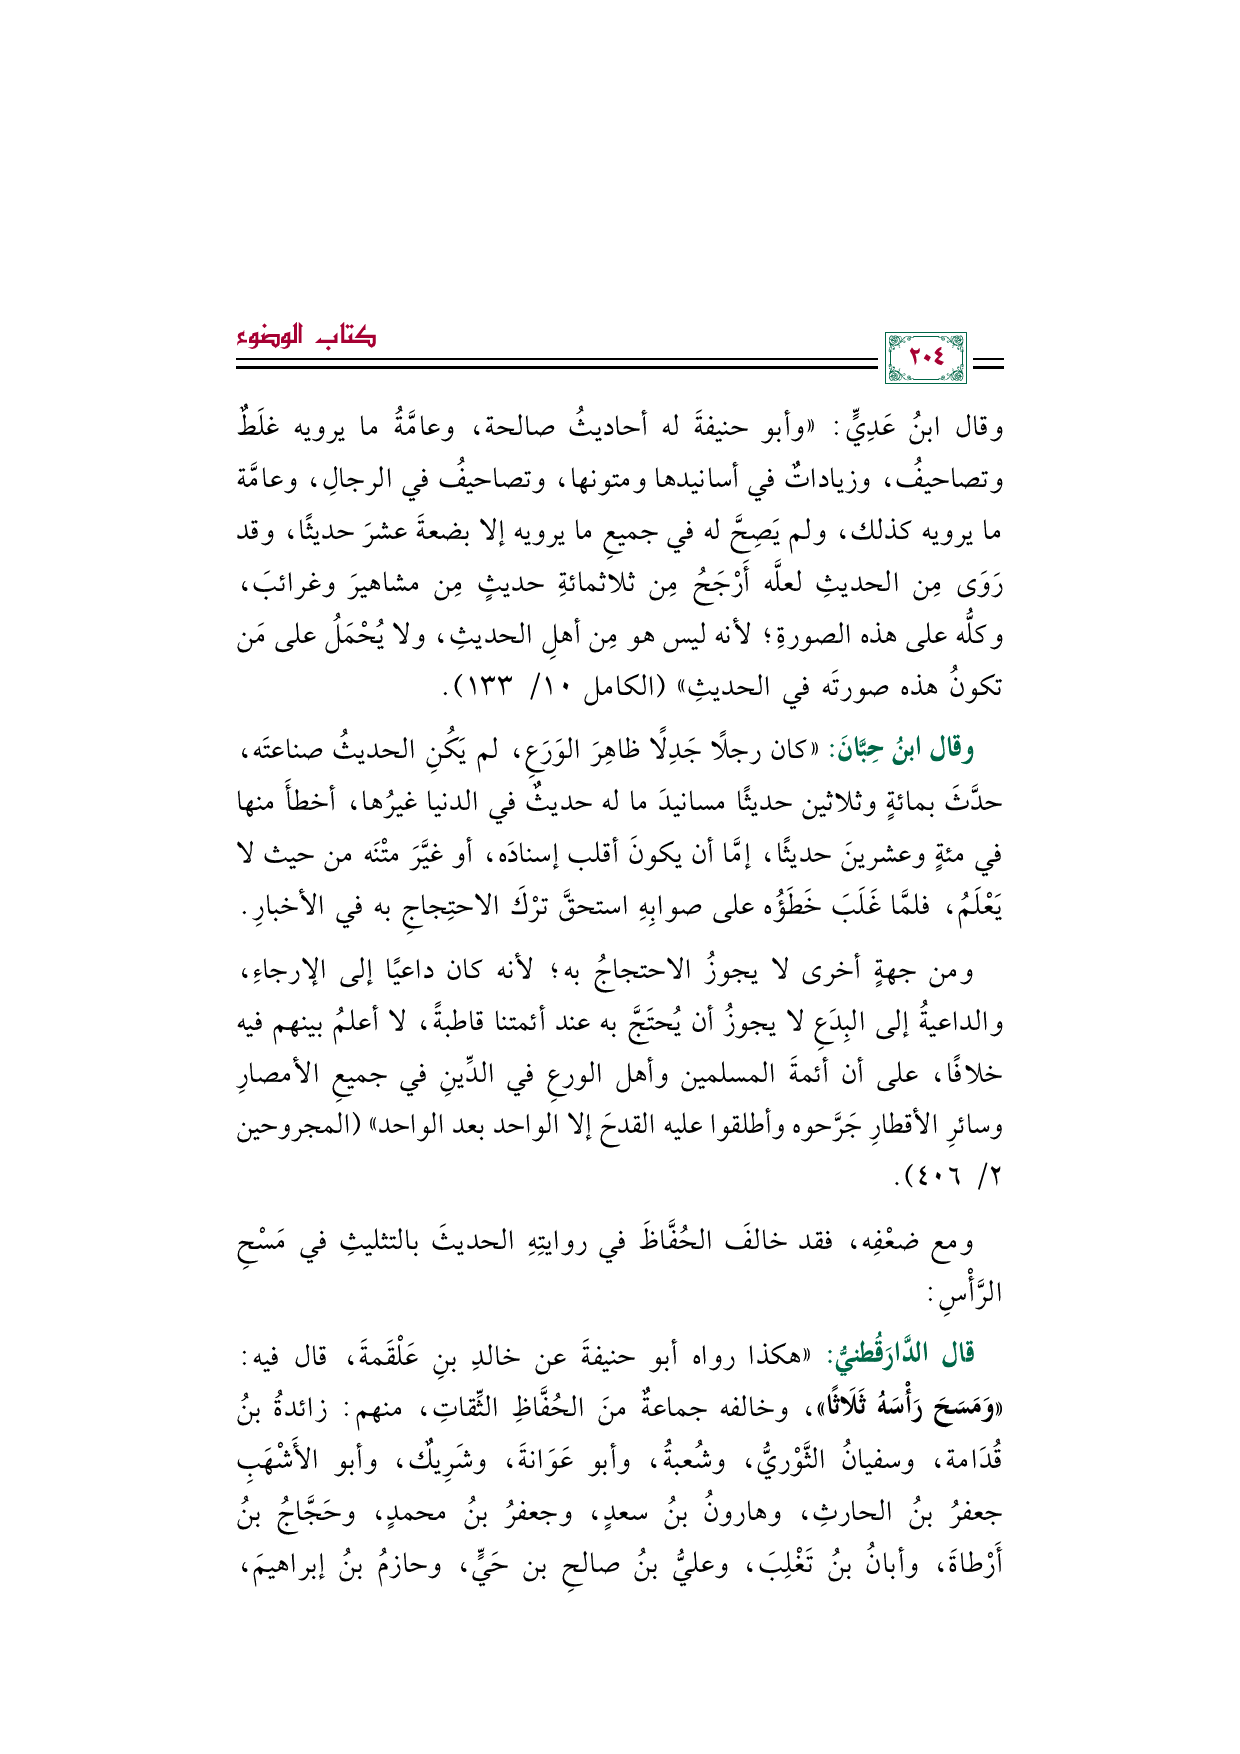 كتاب الوضوء
٢٠٤
وقال ابنُ عَدِيٍّ: «وأبو حنيفةَ له أحاديثُ صالحة، وعامَّةُ ما يرويه غلَطٌ
وتصاحيفُ، وزياداتٌ في أسانيدها ومتونها، وتصاحيفُ في الرجالِ، وعامَّة
ما يرويه كذلك، ولم يَصِحَّ له في جميعِ ما يرويه إلا بضعةَ عشرَ حديثًا، وقد
رَوَى مِن الحديثِ لعلَّه أَرْجَحُ مِن ثلاثمائةِ حديثٍ مِن مشاهيرَ وغرائبَ،
وكلُّه على هذه الصورةِ؛ لأنه ليس هو مِن أهلِ الحديثِ، ولا يُحْمَلُ على مَن
تكونُ هذه صورتَه في الحديثِ» (الكامل ١٠/ ١٣٣).
وقال ابنُ حِبَّانَ: «كان رجلًا جَدِلًا ظاهِرَ الوَرَعِ، لم يَكُنِ الحديثُ صناعتَه،
حدَّثَ بمائةٍ وثلاثين حديثًا مسانيدَ ما له حديثٌ في الدنيا غيرُها، أخطأَ منها
في مئةٍ وعشرينَ حديثًا، إمَّا أن يكونَ أقلب إسنادَه، أو غيَّرَ متْنَه من حيث لا
يَعْلَمُ، فلمَّا غَلَبَ خَطَؤُه على صوابِهِ استحقَّ ترْكَ الاحتِجاجِ به في الأخبارِ.
ومن جهةٍ أخرى لا يجوزُ الاحتجاجُ به؛ لأنه كان داعيًا إلى الإرجاءِ،
والداعيةُ إلى البِدَعِ لا يجوزُ أن يُحتَجَّ به عند أئمتنا قاطبةً، لا أعلمُ بينهم فيه
خلافًا، على أن أئمةَ المسلمين وأهل الورعِ في الدِّينِ في جميعِ الأمصارِ
وسائرِ الأقطارِ جَرَّحوه وأطلقوا عليه القدحَ إلا الواحد بعد الواحد» (المجروحين
٢/ ٤٠٦).
ومع ضعْفِه، فقد خالفَ الحُفَّاظَ في روايتِهِ الحديثَ بالتثليثِ في مَسْحِ
الرَّأْسِ:
قال الدَّارَقُطنيُّ: «هكذا رواه أبو حنيفةَ عن خالدِ بنِ عَلْقَمةَ، قال فيه:
«وَمَسَحَ رَأْسَهُ ثَلَاثًا»، وخالفه جماعةٌ منَ الحُفَّاظِ الثِّقاتِ، منهم: زائدةُ بنُ
قُدَامة، وسفيانُ الثَّوْريُّ، وشُعبةُ، وأبو عَوَانةَ، وشَرِيكٌ، وأبو الأَشْهَبِ
جعفرُ بنُ الحارثِ، وهارونُ بنُ سعدٍ، وجعفرُ بنُ محمدٍ، وحَجَّاجُ بنُ
أَرْطاةَ، وأبانُ بنُ تَغْلِبَ، وعليُّ بنُ صالحِ بن حَيٍّ، وحازمُ بنُ إبراهيمَ،